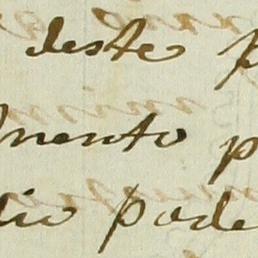 deste p
mento p
dio pode